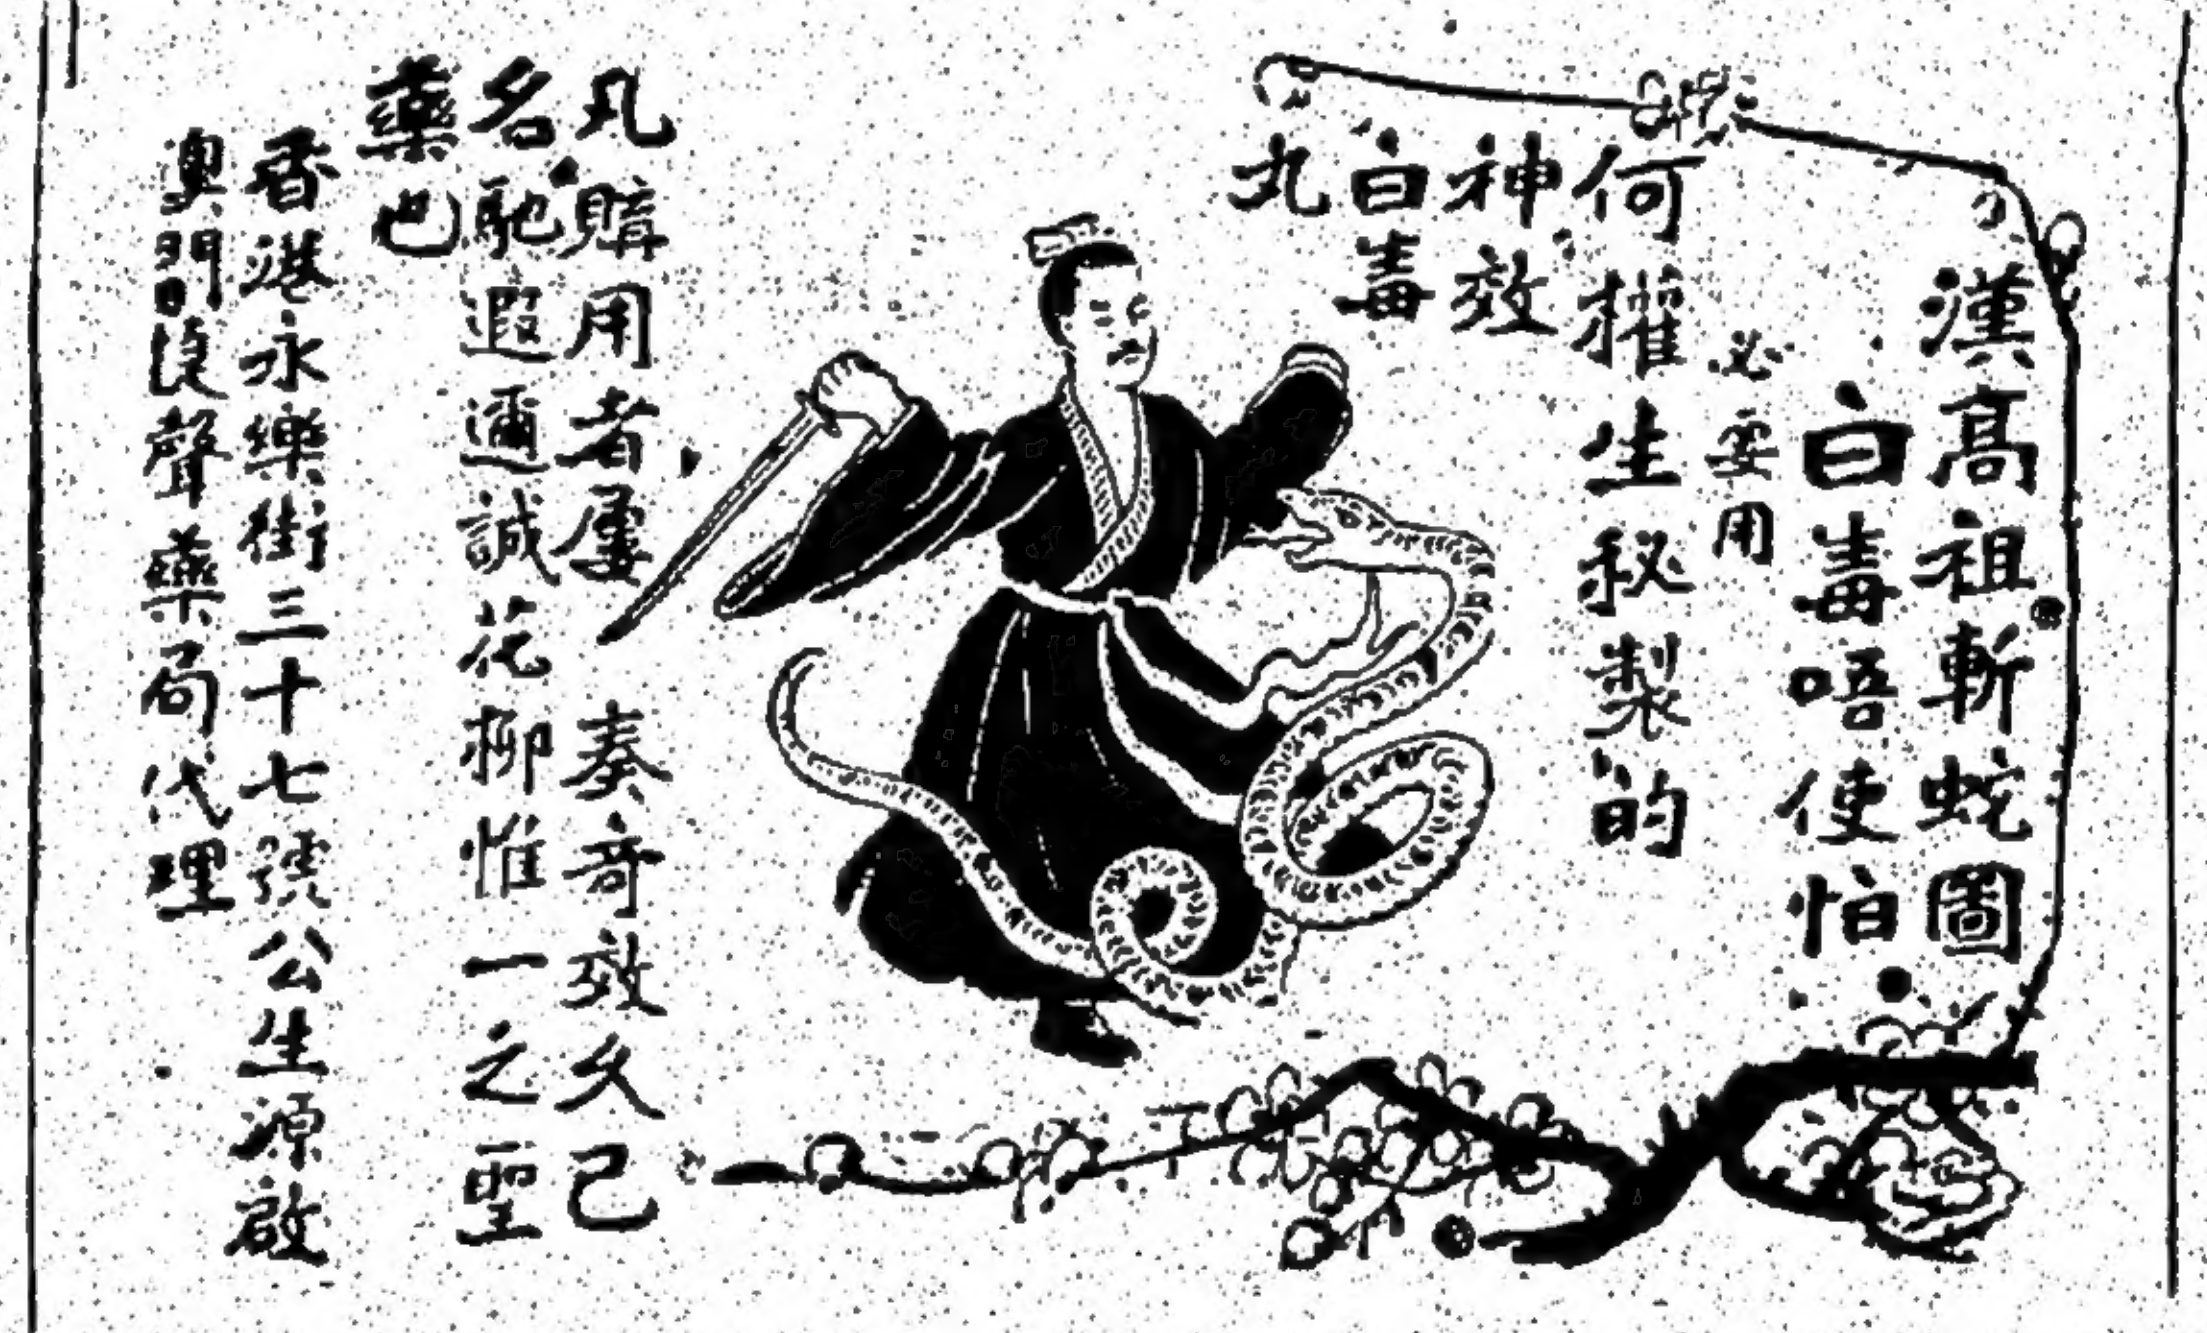 漢高祖斬蛇圖
白毒唔使怕
必要用
何權生秘製的
神效
白毒
丸
凡購用者屢奏奇效久已
名馳遐邇誠花柳惟一之聖
藥也
香港永樂街三十七號公生源啟
澳門聲藥局代理